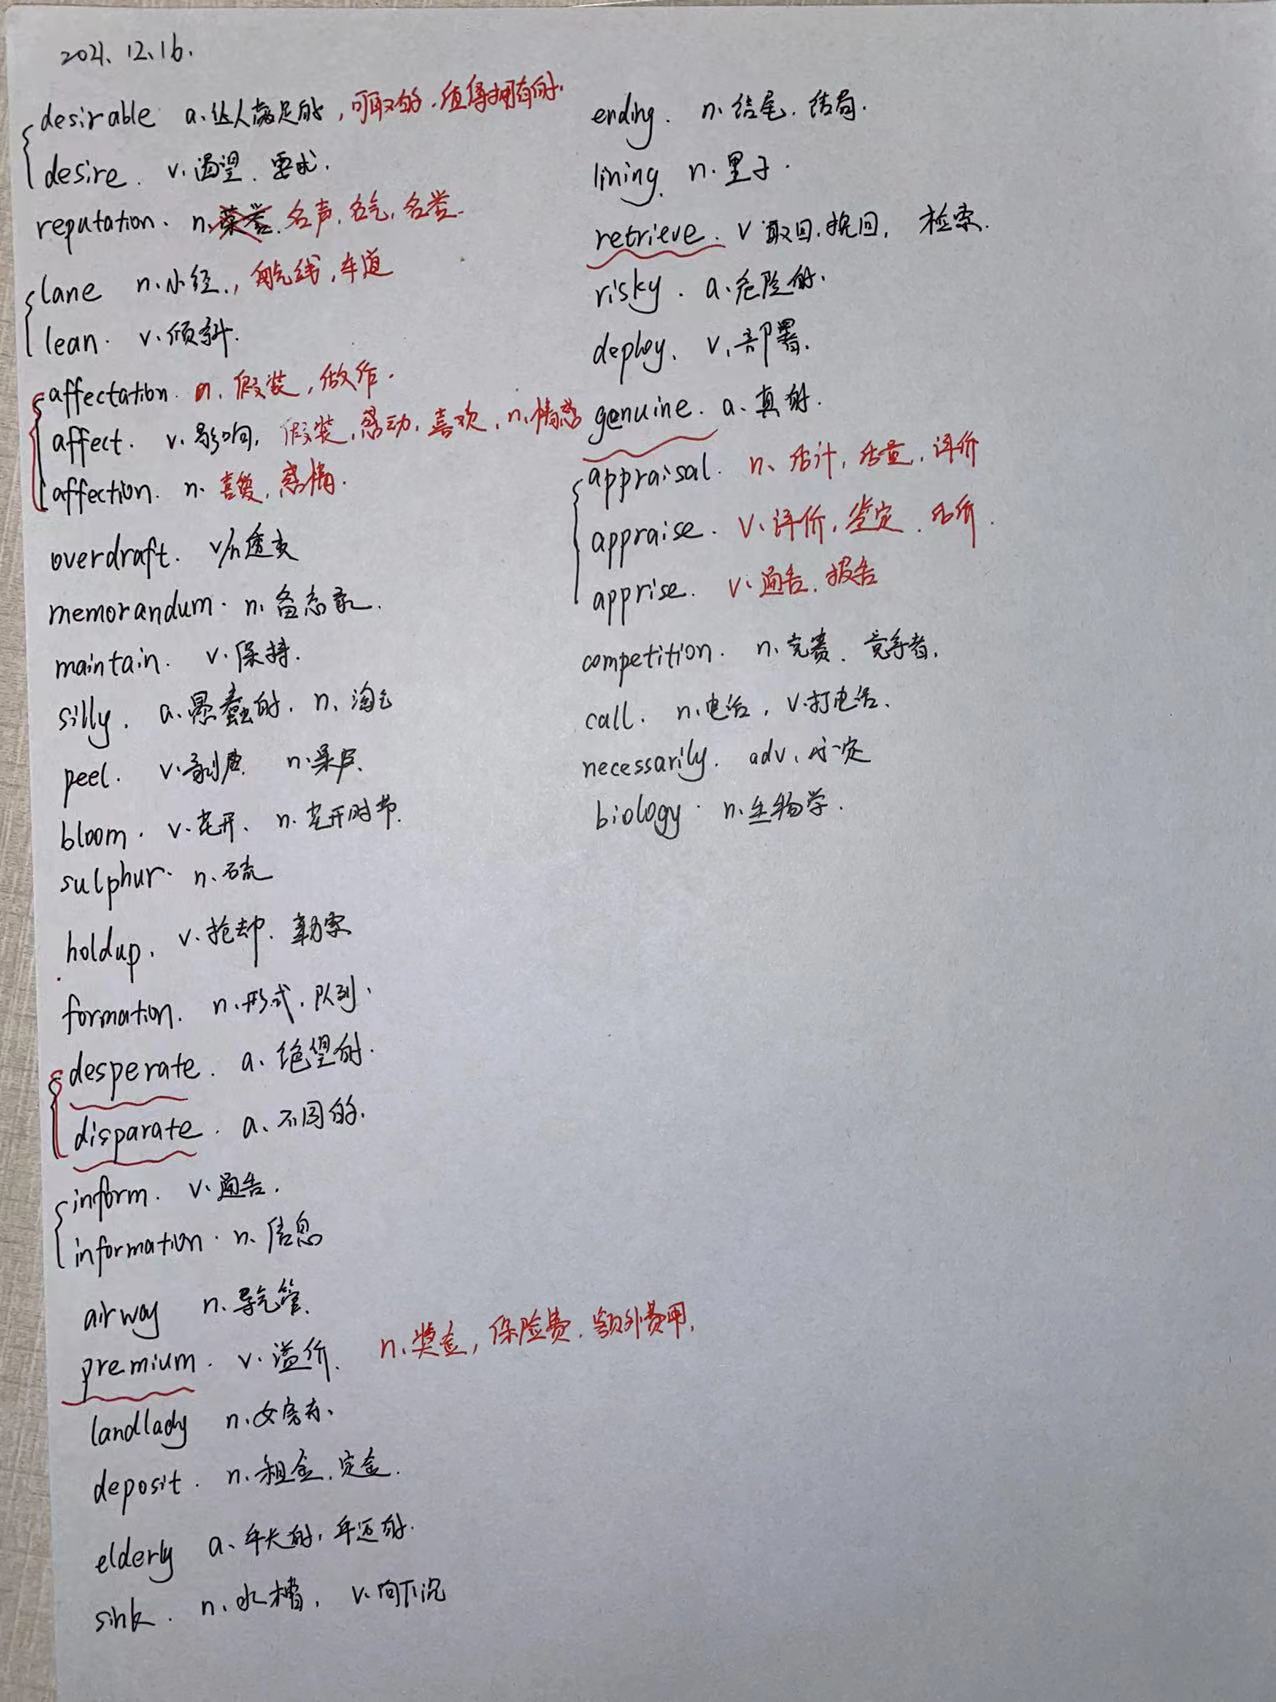 2021.12.16.
desirable a.让人满足的,可取的.值得拥有的.
desire. v.渴望.要求.
reputation. n.荣誉.名声.名气.名誉.
lane n.小径.,航线,车道
lean. v.倾斜.
affectation. n.假装,做作.
affect. v.影响,假装,感动,喜欢,n.情感
affection. n.喜爱,感情.
overdraft. v/n透支
memorandum. n.备忘录.
maintain. v.保持.
silly. a.愚蠢的. n.淘气
peel. v.剥皮 n.果皮.
bloom. v.花开. n.花开时节.
sulphur. n.硫
holdup. v.抢劫.勒索
formation. n.形式.队列.
desperate. a.绝望的.
disparate. a.不同的.
inform. v.通告.
information. n.信息
airway n.导气管.
premium. v.溢价. n.奖金,保险费.额外费用.
landlady n.女房东.
deposit. n.租金.定金.
elderly a.年长的,年迈的.
sink. n.水槽, v.向下沉
ending. n.结尾.结局.
lining. n.里子.
retrieve. v取回.挽回, 检索.
risky. a.危险的.
deploy. v.部署.
genuine. a.真的.
appraisal. n.估计,估量,评价
appraise. v.评价,鉴定.估价.
apprise. v.通告.报告
competition. n.竞赛.竞争者.
call. n.电话, v.打电话.
necessarily. adv.必定
biology. n.生物学.